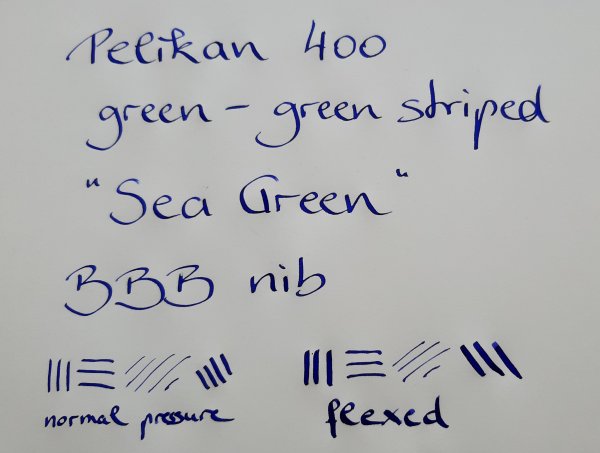 Pelikan 400
green - green striped
"Sea Green"
BBB nib
normal pressure flexed